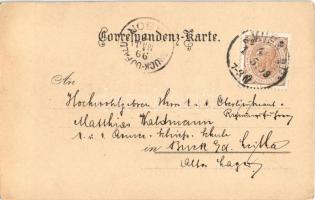 Correspondenz-Karte.
BRUCK-UJFALU
99
An
Hochwohlgeboren Herrn k. u. k. Oberlieutenant
Matthias Waldmann
k. u. k. Armee-Schiess-Schule
in Bruck a/d. Leitha
Altes Lager